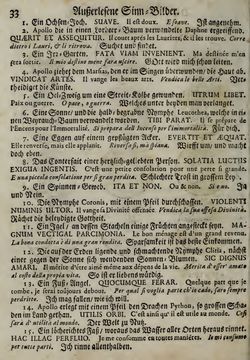 33 Außerlesene Sinn-Bilder.
1. Ein Ochsen-Joch. SUAVE. Il est doux. E soave. Ist angenehm.
2. Apollo bei in einen Lorbeer-Baum verwandelte Daphne ergreifend.
QUÆRIT ET ASSEQUITUR. Il court après les Lauriers, & il les trouve. Corre
dietro i Lauri, e li ritrova. Suchet und findet.
3. Ein Irr-Garten. FATA VIAM INVENIENT. Ma destinée m'en
fera sortir. Il mio destino mene farà uscire. Gott wird mich schon leiten.
4. Apollo ziehet dem Marsias, den er im Singen überwunden die Haut ab.
VINDICAT ARTES. Il vange les beaux Arts. Vendica le belle Arti.
theidiget die Künste.
5. Ein Oel-Zweig um eine Streit-Kolbe gewunden. UTRUM LIBET.
Paix ou guerre. O pace, o guerra. Welches unter beyden man verlanget.
6. Die in die verbotene und begrabene Nymphe Leucothoe, welche in einen
Weyrauch-Baum verwandelt worden. TIBI PARAT. Il te prépare de
l'Encens pour l'Immortalité. Si prepara dell' incenso per l'immortalità. Für dich.
7. Eine Eggen auf einem gepflügten Acker. EVERTIT ET ÆQUAT.
Elle renverse, mais elle applanit. Rovescia sì, ma spiana. Wirfft um, und macht
doch eben.
8. Das Conterfait einer hertzlich-geliebten Person. SOLATIA LUCTUS
EXIGUA INGENTIS. C'est une petite consolation pour une perte si grande.
E una piccola consolatione per sì gran perdita. Schlechter Trost in grossem Leyd.
9. Ein Spinnen-Geweb. ITA ET NON. Ou & non. Si e no. Ja
und Nein.
10. Die Nymphe Coronis, mit einem Pfeil durchschossen. VIOLENTI
NUMINIS ULTOR. Il vange sa Divinité offencée. Vendica la sua offesa Divinità.
Rächet die beleidigte Gottheit.
11. Ein Igel, an dessen Stacheln einige Früchten angesteckt seyn. MA-
GNUM VECTIGAL PARCIMONIA. Le bon ménage est un grand revenu.
La buona condotta è di una gran rendita. Sparsamkeit ist das beste Einkommen.
12. Die auf der Erden ligende und schmachtende Nymphe Clitie, nach
einer gegen der Sonnen sich wendenden Sonnen-Blumen. SIC DIGNUS
AMARI. Il mérite d'être aimé même aux dépens de la vie. Merita d'esser amato
al costo della propria vita. So ist er liebens würdig.
13. Ein Fuß-Angel. QUOCUMQUE FERAR. Quelque part que je
tombe, je ferai toûjours debout. Per qual si voglia parte ch'io cada, sarò sempre
perdritto. Ich mag fallen wie ich will.
14. Apollo erlegt mit einem Pfeil den Drachen Python, so grossen Schaden
im Land gethan. UTILIS ORBI. C'est ainsi qu'il est utile au monde. Così
farà d'utilità al mondo. Der Welt zu Nutz.
15. Ein löcherichtes Faß, woraus das Wasser aller Orten heraus rinnet.
HAC ILLAC PERFLUO. Je me consomme en toutes manières. Io mi consumo
per ogni parte. Ich rinne allenthalben.